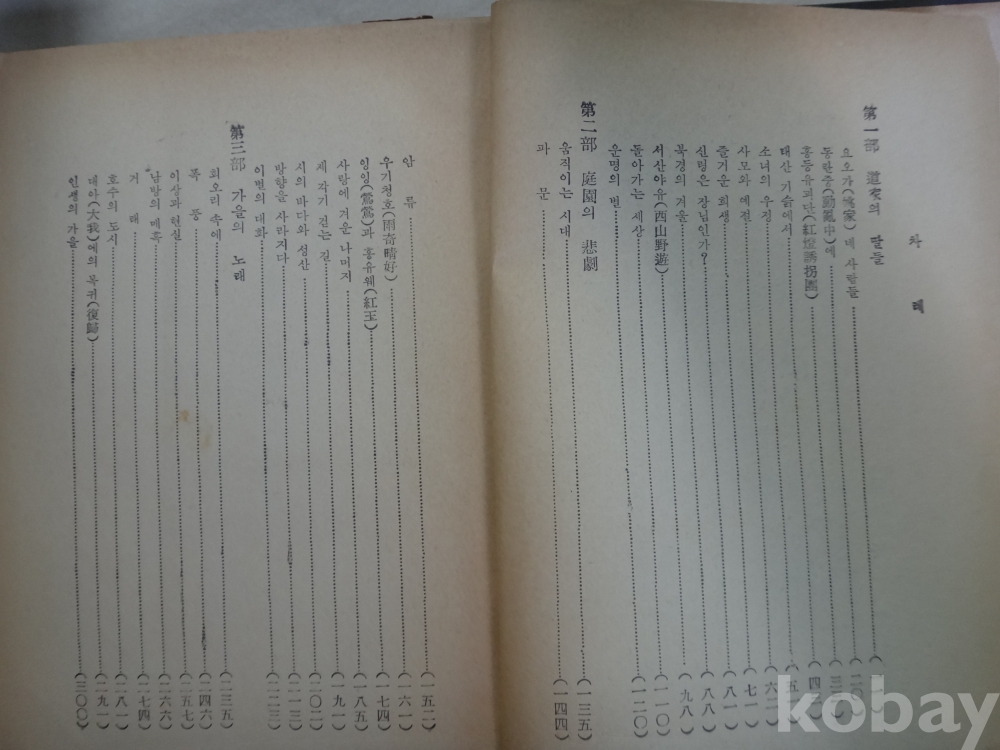 차 례
第一部 道家의 딸들
요오가(姚家)네 사람들………(一)
동란중(動亂中)에………(二〇
홍등유괴단(紅燈誘拐團)………(三
태산 기슭에서………(四
소녀의 우정………(五
사모와 예절………(六二
즐거운 희생………(七一
신령은 장님인가?………(八一
북경의 겨울………(八八)
서산야유(西山野遊)………(九八)
돌아가는 세상………(一一〇)
운명의 변………(一二〇)
第二部 庭園의 悲劇
움직이는 시대………(一三五)
파 문………(一四四)
암 류………(一五二)
우기청호(雨奇晴好)………(一六一)
잉잉(鶯鶯)과 홍유웨(紅玉)………(一七四)
사랑에 겨운 나머지………(一八五)
제 각기 걷는 길………(一九一)
시의 바다와 성산………(二〇二)
방향을 사라지다………(二一三)
이별의 대화………(二二三)
第三部 가을의 노래
회오리 속에………(二三五)
폭 풍………(二四六)
이상과 현실………(二五七)
남방의 매혹………(二六六)
거 래………(二七四)
호수의 도시………(二八一)
대아(大我)에의 복귀(復歸)………(二九一)
인생의 가을………(三〇〇)
kobay